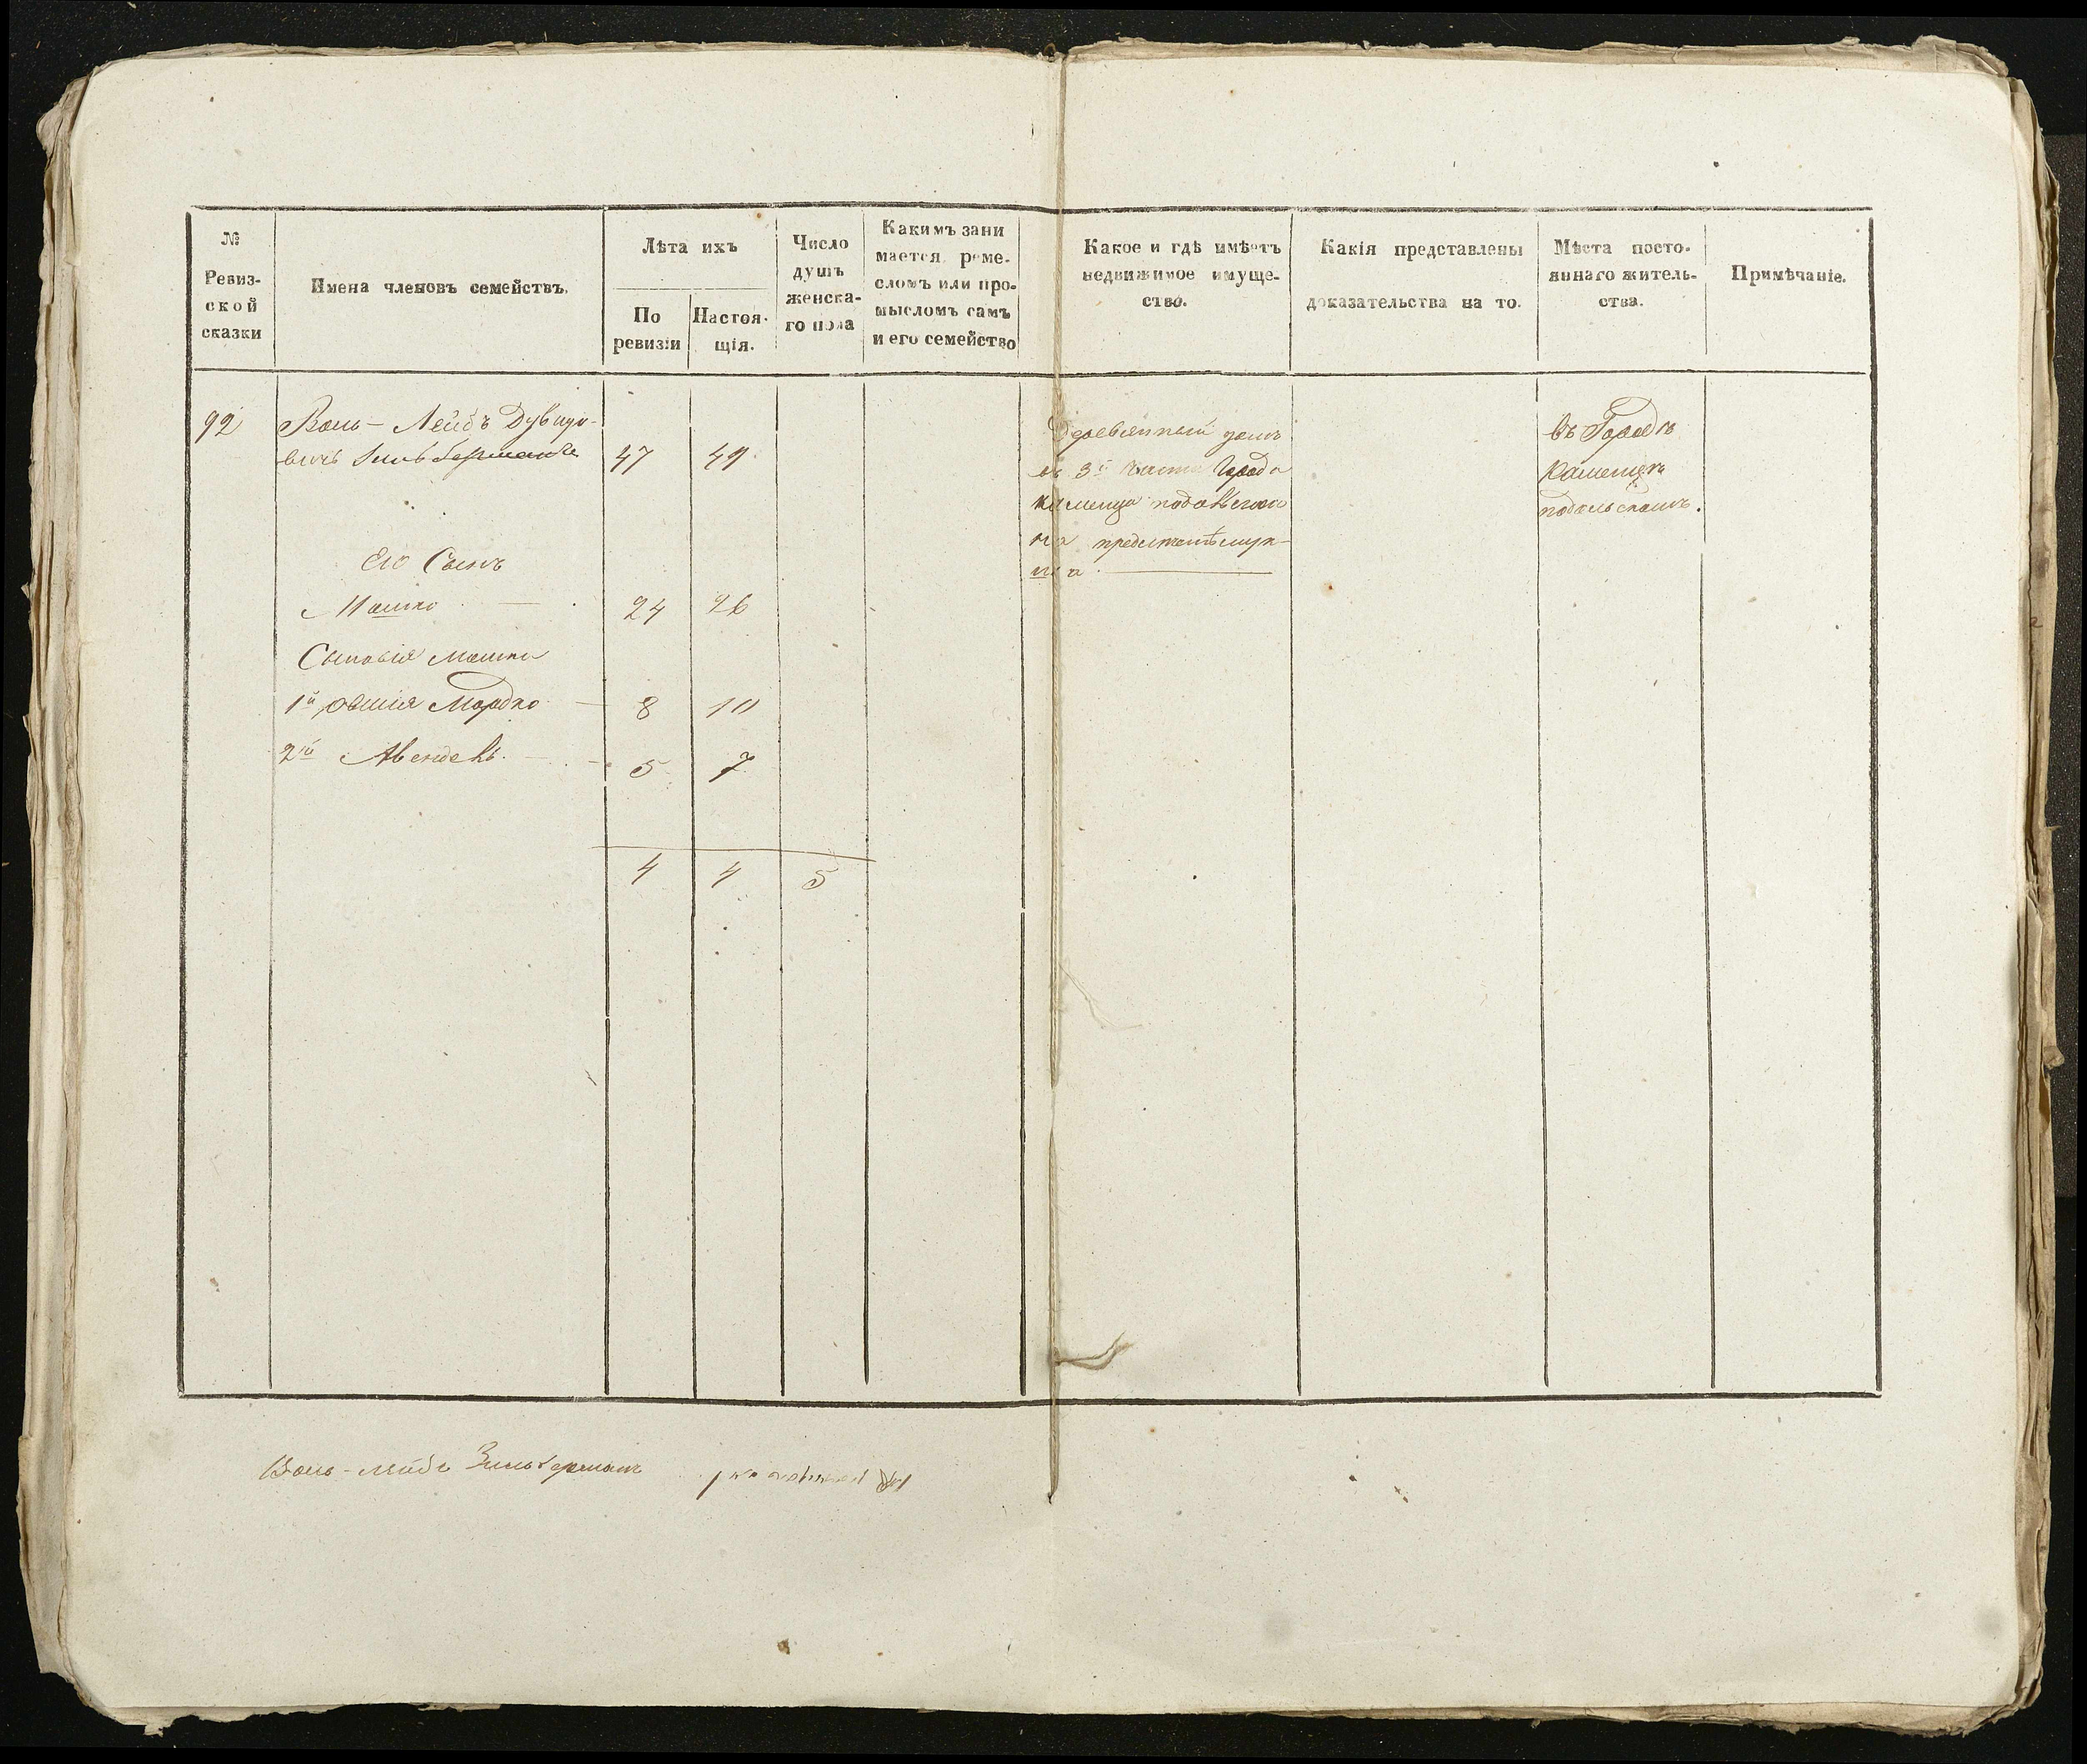 №
Ревиз-
ской
сказки
Имена членовъ семействъ.
Лѣта ихъ
По
ревизіи
Настоя-
щія.
Число
душъ
женска-
го пола
Какимъ зани
мается реме-
сломъ или про-
мысломъ самъ
и его семейство
Какое и гдѣ имѣетъ
недвижимое имуще-
ство.
Какія представлены
доказательства на то.
Мѣста посто-
яннаго житель-
ства.
Примѣчаніе.
92 Лейбъ Дувидо-
вичъ Зильберманъ 47 49
Деревянный домъ
въ 3й части Города
Каменца подольскаго
на
въ Городѣ
Каменцѣ
подольскомъ.
Его Сынъ
Мошко 24 26
Сыновія Мошки
1й Мордко 8 10
2й 5 7
4 4 5
Лейбъ Зильберманъ